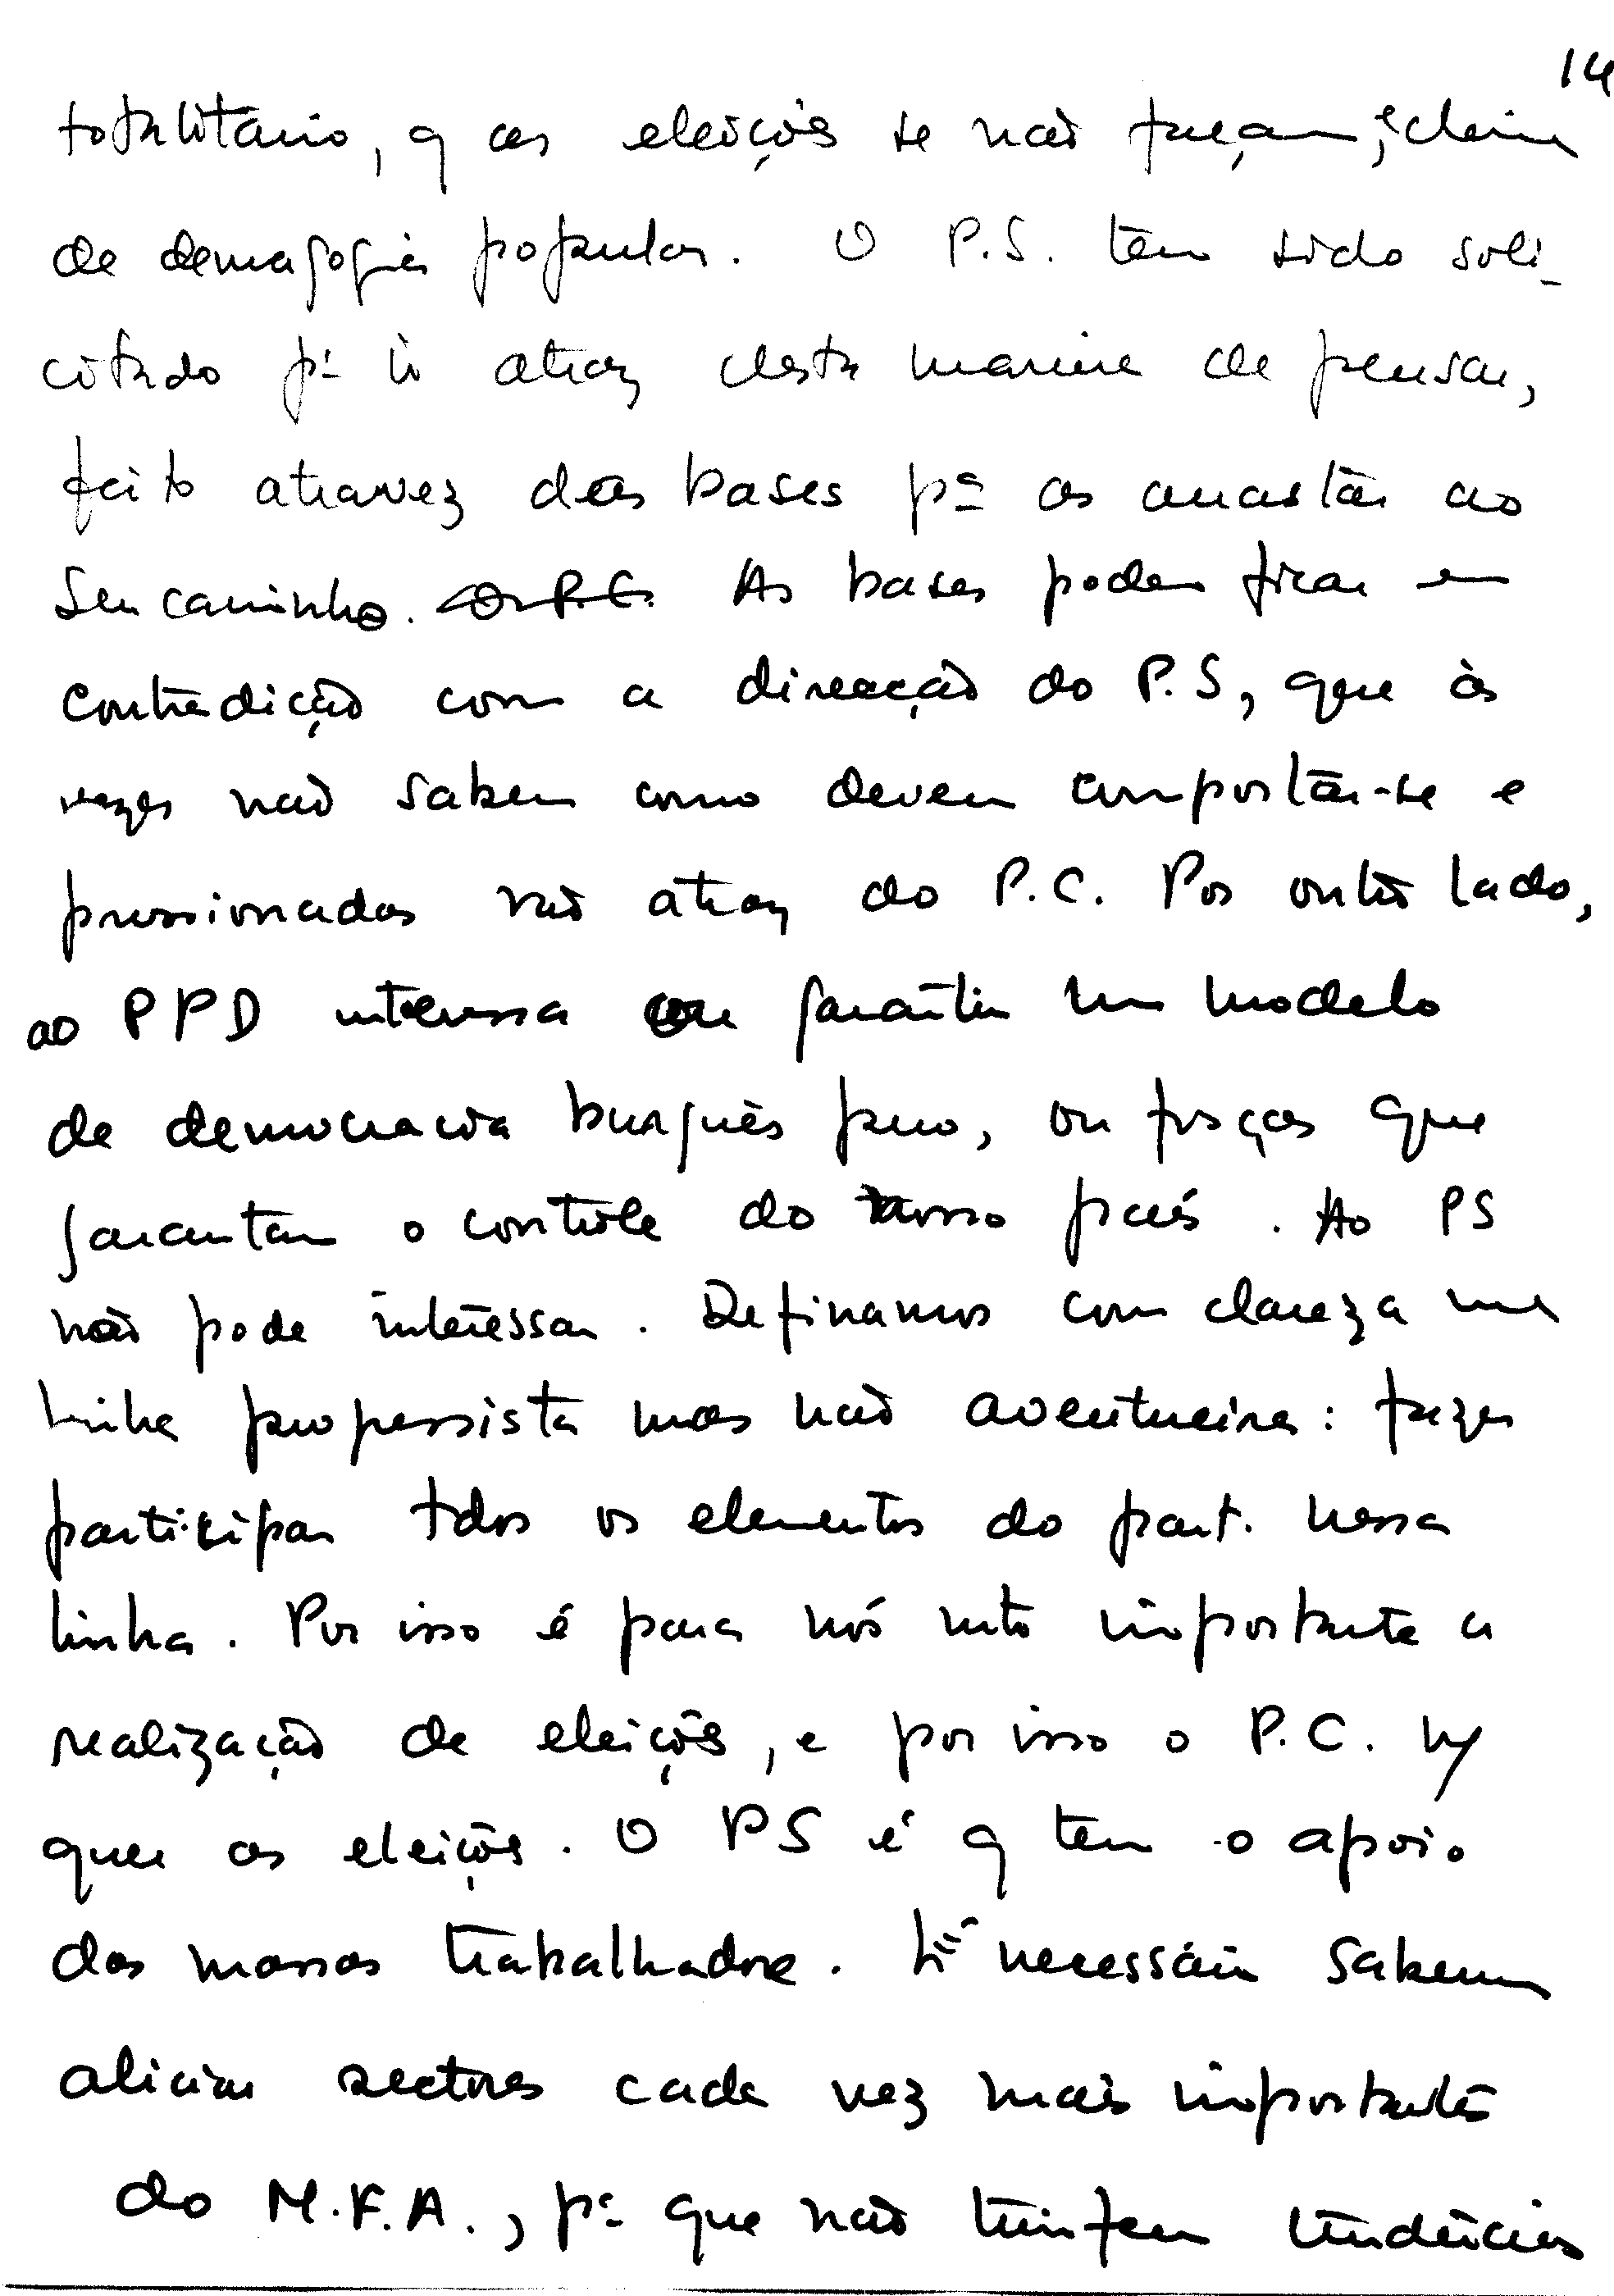 14
totalitário, q as eleições se não façam, e cheia
de demagogia popular. O P.S. tem sido soli-
citado pª ir atraz desta maneira de pensar,
feito atravez das bases pª os arrastar ao
seu caminho. O P.C. As bases podem ficar em
contradição com a direcção do P.S, que às
vezes não sabem como devem comportar-se e
pressionadas vão atraz do P.C. Por outro lado,
ao PPD interessa garantir um modelo
de democracia burguês puro, ou forças que
garantam o controle do nosso país. Ao PS
não pode interessar. Definamos com clareza uma
linha progressista mas não aventureira: fazer
participar todos os elementos do part. nessa
linha. Por isso é para nós mto importante a
realização de eleições, e por isso o P.C. ñ
quer as eleições. O PS é q tem o apoio
das massas trabalhadoras. É necessário sabermos
aliciar sectores cada vez mais importantes
do M.F.A., pª que não triunfem tendências